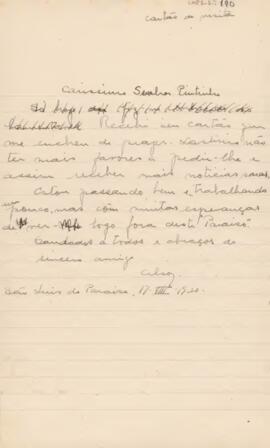 cartão de visita
Carissimo Senhor Pintinho
Recebi seu cartão que
me encheu de prazer. Lastimo não
ter mais favores a pedir-lhe e
assim receber mais noticias suas.
Estou passando bem e trabalhando
um pouco, mas com muitas esperanças
de ver- logo fora deste "Paraiso".
Saudades a todos e abraços do
sincero amigo
São Luis do Paraiso, 17 VIII 1920.